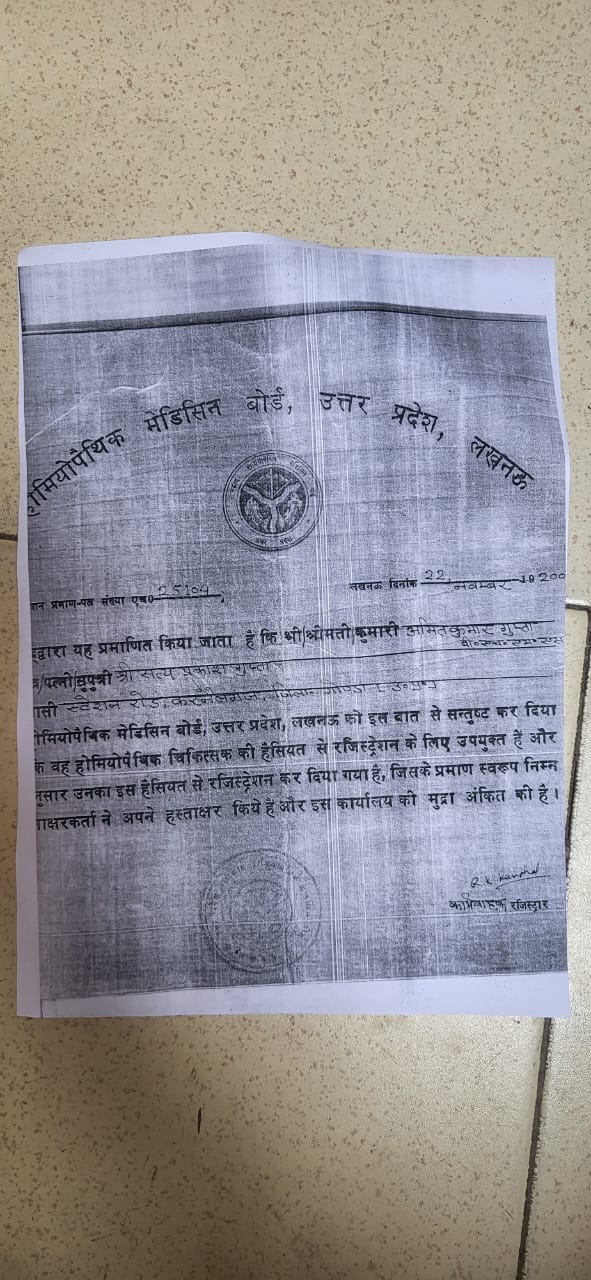 होमियोपैथिक मेडिसिन बोर्ड, उत्तर प्रदेश, लखनऊ
न प्रमाण-पत्र संख्या एच0 25104
लखनऊ दिनांक 22 नवम्बर 19 200
द्वारा यह प्रमाणित किया जाता है कि श्री/श्रीमती/कुमारी अमितकुमार गुप्ता
बी०एच०एम०एस
/पत्नी/सुपुत्री श्री सत्य प्रकाश गुप्ता
सी स्टेशन रोड, करनैलगंज, जिला- गोण्डा (उ०प्र०)
ोमियोपैथिक मेडिसिन बोर्ड, उत्तर प्रदेश, लखनऊ को इस बात से सन्तुष्ट कर दिया
क वह होमियोपैथिक चिकित्सक की हैसियत से रजिस्ट्रेशन के लिए उपयुक्त हैं और
नुसार उनका इस हैसियत से रजिस्ट्रेशन कर दिया गया है, जिसके प्रमाण स्वरूप निम्न
ाक्षरकर्ता ने अपने हस्ताक्षर किये हैं और इस कार्यालय की मुद्रा अंकित की है।
रजिस्ट्रार